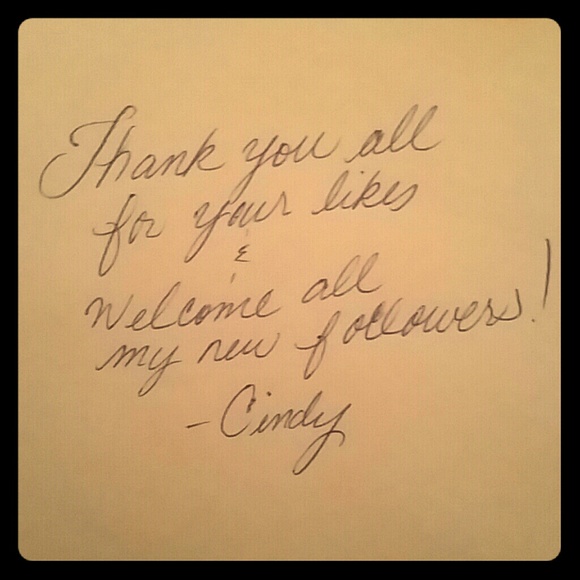 Thank you all
for your likes
&
Welcome all
my new followers!
- Cindy